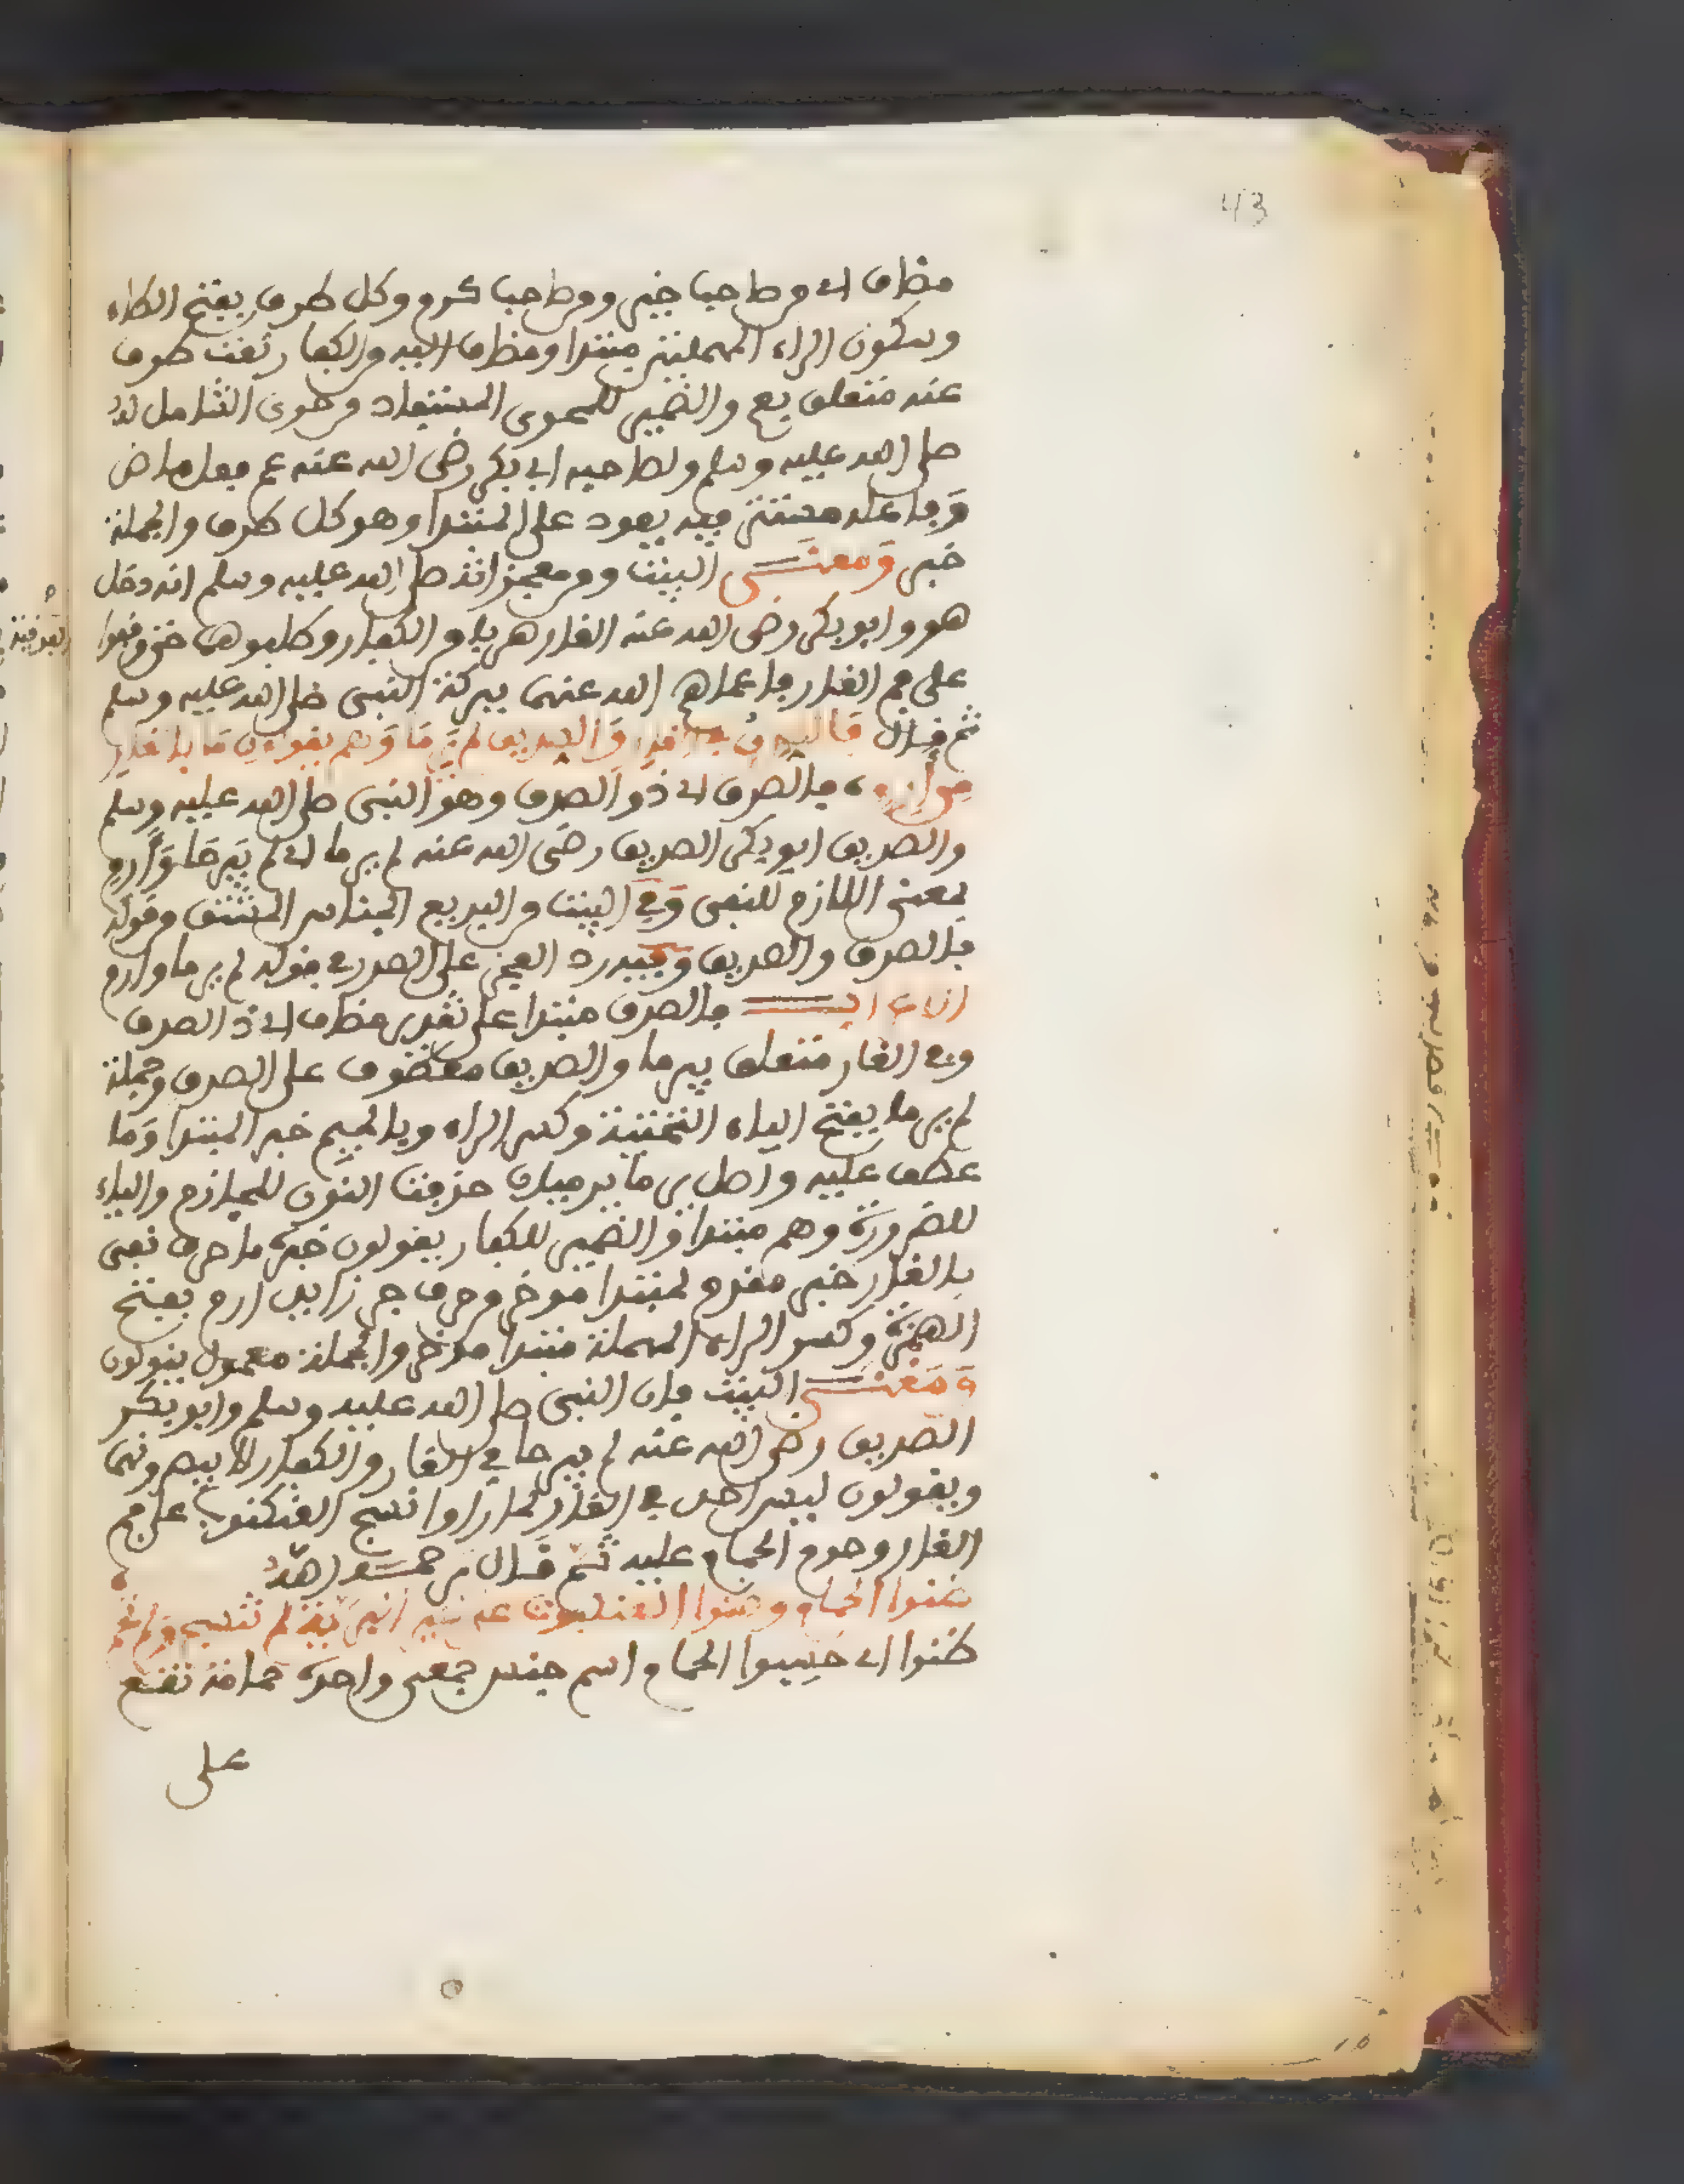 43
مضاف اي من صاحب خير ومن صاحب كرم وكل طرف بفتح الطاء
وسكون الراء المهملتين مبتدا ومضاف اليه من الكفار نعت طرف
عنه متعلق بعم والضمير للمحوى المستفاد من حوى الشامل له
صلى الله عليه وسلم ولصاحبه ابي بكر رضى الله عنه عم فعل ماض
وفاعله مستتر فيه يعود على المبتدا وهو كل طرف والجملة
خبر ومعنى البيت ومن معجزاته صلى الله عليه وسلم انه دخل
هو وابو بكر رضى الله عنه الغار هربا من الكفار وطلبوهما حتى وقفوا
على فم الغار فاعماهم الله عنهما ببركة النبي صلى الله عليه وسلم
ثم قال فالصدق في الغار والصديق لم يرما وهم يقولون ما بالغار
من ارم فالصدق اي ذو الصدق وهو النبي صلى الله عليه وسلم
والصديق ابو بكر الصديق رضى الله عنه لم يرما اي لم يبرحا وارم
بمعنى اللازم للنفي وفي البيت من البديع الجناس المشتق في قوله
فالصدق والصديق وفيه رد العجز على الصدر في قوله لم يرما وارم
اعراب البيت فالصدق مبتدا على تقدير مضاف اي ذو الصدق
وفي الغار متعلق بيرما والصديق معطوف على الصدق وجملة
لم يرما بفتح الياء التحتية وكسر الراء وبالميم خبر المبتدا وما
عطف عليه واصل يرما يريمان حذفت النون للجازم والياء
للضرورة وهم مبتدا والضمير للكفار يقولون خبره ما حرف نفي
بالغار خبر مقدم لمبتدا موخر من حرف جر زايد ارم بفتح
الهمزة وكسر الراء المهملة مبتدا موخر والجملة معمول يقولون
ومعنى البيت فان النبي صلى الله عليه وسلم وابو بكر
الصديق رضى الله عنه لم يبرحا في الغار والكفار لا يبصرونهما
ويقولون ليس احد في الغار لما راوا نسج العنكبوت على فم
الغار وحوم الحمام عليه ثم قال رحمه الله
ظنوا الحمام وظنوا العنكبوت على خير البرية لم تنسج ولم تحم
ظنوا اي حسبوا الحمام اسم جنس جمعي واحده حمامة تقع
على